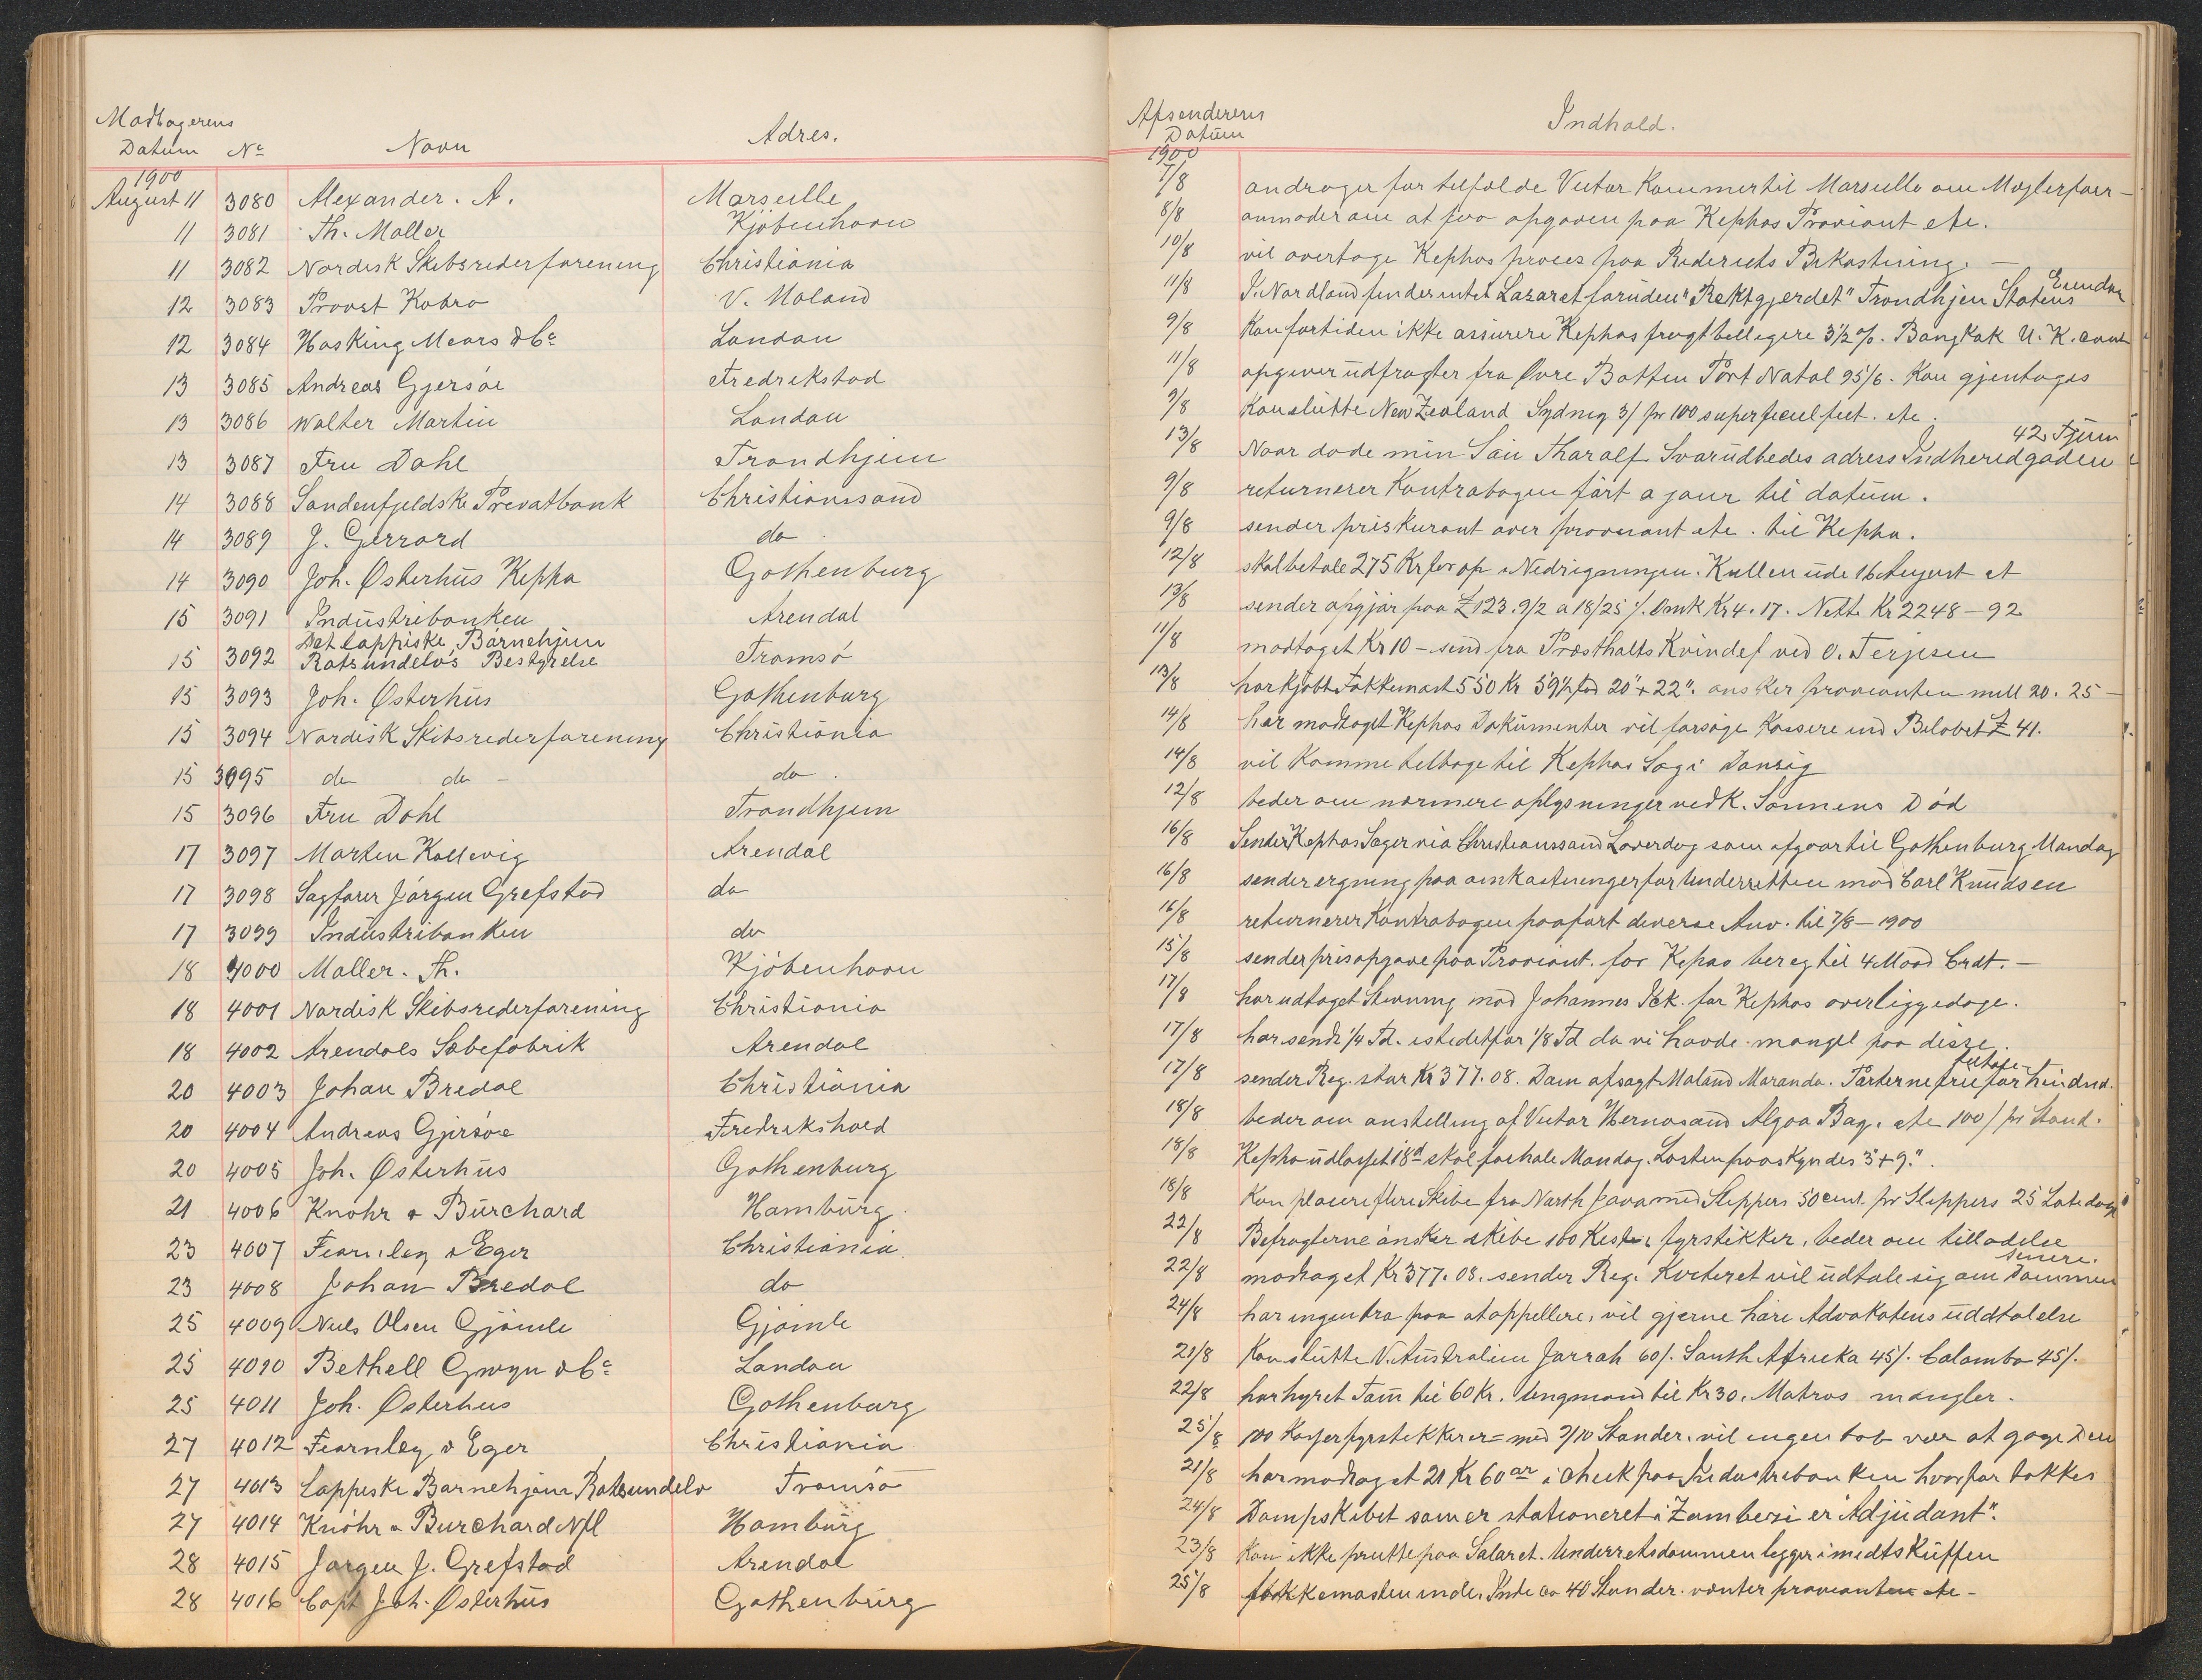 Modtagerens
Datum No Navn Adres.
1900
August 11 3080 Alexander. A. Marseille
11 3081 Th. Møller Kjöbenhavn
11 3082 Nordisk Skibsrederforening Christiania
12 3083 Provst Kobro V. Moland
12 3084 Hosking Mears & Co London
13 3085 Andreas Gjersöe Fredrikstad
13 3086 Walter Martin London
13 3087 Fru Dahl Trondhjem
14 3088 Söndenfjeldske Privatbank Christianssand
14 3089 J. Gerrard do
14 3090 Joh. Østerhus Kepha Gothenburg
15 3091 Industribanken Arendal
15 3092 Det lappiske Barnehjem Ratsundelvs Bestyrelse Tromsö
15 3093 Joh. Østerhus Gothenburg
15 3094 Nordisk Skibsrederforening Christiania
15 3095 do do - do
15 3096 Fru Dahl Trondhjem
17 3097 Morten Kallevig Arendal
17 3098 Sagförer Jörgen Grefstad do
17 3099 Industribanken do
18 4000 Møller. Th. Kjöbenhavn
18 4001 Nordisk Skibsrederforening Christiania
18 4002 Arendals Sæbefabrik Arendal
20 4003 Johan Bredal Christiania
20 4004 Andreas Gjersöe Fredrikshald
20 4005 Joh. Østerhus Gothenburg
21 4006 Knöhr & Burchard Hamburg
23 4007 Fearnley & Eger Christiania
23 4008 Johan Bredal do
25 4009 Niels Olsen Gjömle Gjömle
25 4010 Bethell Gwyn & Co London
25 4011 Joh. Østerhus Gothenburg
27 4012 Fearnley & Eger Christiania
27 4013 Lappiske Barnehjem Ratsundelv Tromsö
27 4014 Knöhr & Burchard Nfl Hamburg
28 4015 Jörgen J. Grefstad Arendal
28 4016 Capt Joh. Østerhus Gothenburg
Afsenderens
Datum Indhold.
1900
7/8 andrager for tilfælde Victor Kommer til Marseille om Mæglerfaer-
8/8 anmoder om at faa opgaven paa Kephas Proviant etc.
10/8 vil overtage Kephas proces paa Rederiets Bekostning. -
11/8 I. Nordland findes intet Lazaret foruden "Rektgjerdet" Trondhjem Statens Eiendom
9/8 Kan for tiden ikke assurere Kephas fragt billigere 3 1/2 %. Bangkok U. K. cont
11/8 opgiver udfragter fra Øvre Botten Port Natal 95/6. Kan gjentages
9/8 Kan slutte New Zealand Sydney 3/ pr 100 superficiel feet. etc.
13/8 Naar döde min Sön Tharalf. Svar udbedes adress Indheredgaden 42 Tjem
9/8 returnerer Kontrabogen fört a jour til datum.
9/8 sender priskurant over proviant etc. til Kepha.
12/8 skal betale 275 Kr for op & Nedrigningen. Kullen ude 16 August et
13/8 sender opgjör paa £123.9/2 a 18/25 /. Omk Kr 4.17. Netto Kr 2248-92
11/8 modtaget Kr 10 - send fra Præsthalts Kvindef ved O. Terjesen
13/8 har kjöbt Fokkemast 550 Kr 59 1/2 fod 20"+22". önsker provianten mell 20. 25 -
14/8 har modtaget Kephas Dokumenter vil forsöge Kassere ind Belöbet £ 41.
14/8 vil Komme tilbage til Kephas Sag i Danzig
12/8 beder om nærmere oplysninger vedk. Sönnens Död
16/8 Sender Kephas Sager via Christianssand Löverdag som afgaar til Gothenburg Mandag
16/8 sender regning paa omkostninger for Underretten mod Carl Knudsen
16/8 returnerer Kontrabogen paafört diverse Anv. til 7/8 - 1900
15/8 sender prisopgave paa Proviant. for Kephas bereg til 4 Maad Crdt. -
17/8 har udtaget Stevning mod Johannes Ick. for Kephas overliggedage.
17/8 har sendt 1/4 Td. istedetfor 1/8 Td da vi havde mangel paa disse.
17/8 sender Reg. stor Kr 377.08. Dom afsagt Moland Maranda. Parterne frie for hindnd.
18/8 beder om anstilling af Victor Hernösand Algoa Bay. etc 100/ pr Stand.
18/8 Kepha udlosset 18d skal forhale Mandag. Lasten paaskyndes 3"+9".
18/8 Kan placere flere Skibe fra North Java med Sleppers 50 cent. pr Sleppers 25 Lastedage
22/8 Befragterne önsker skibe 100 Kister fyrstikker, beder om tilladelse
22/8 modtaget Kr 377.08. sender Reg. Kvitteret vil udtale sig om Dommen senere.
24/8 har ingen tro paa at appellere, vil gjerne höre Advokatens uddtalelse
21/8 Kan slutte V. Australien Jarrah 60/. South Africka 45/. Colombo 45/.
22/8 har hyret Töm til 60 Kr. Ungmand til Kr 30. Matros mangler.
25/8 100 Kasser fyrstikker er = med 9/10 Stander. vil ingen tab være at gage Den
21/8 har modtaget 21 Kr 60 ör i check paa Industribanken hvorfor takkes
24/8 Dampskibet som er stationeret i Zambesi er "Adjudant".
23/8 Kan ikke prutte paa Salæret. Underretsdommen ligger i midts Kuffen
25/8 fokkemasten inde. Inde ca 40 Stander. venter provianten etc -